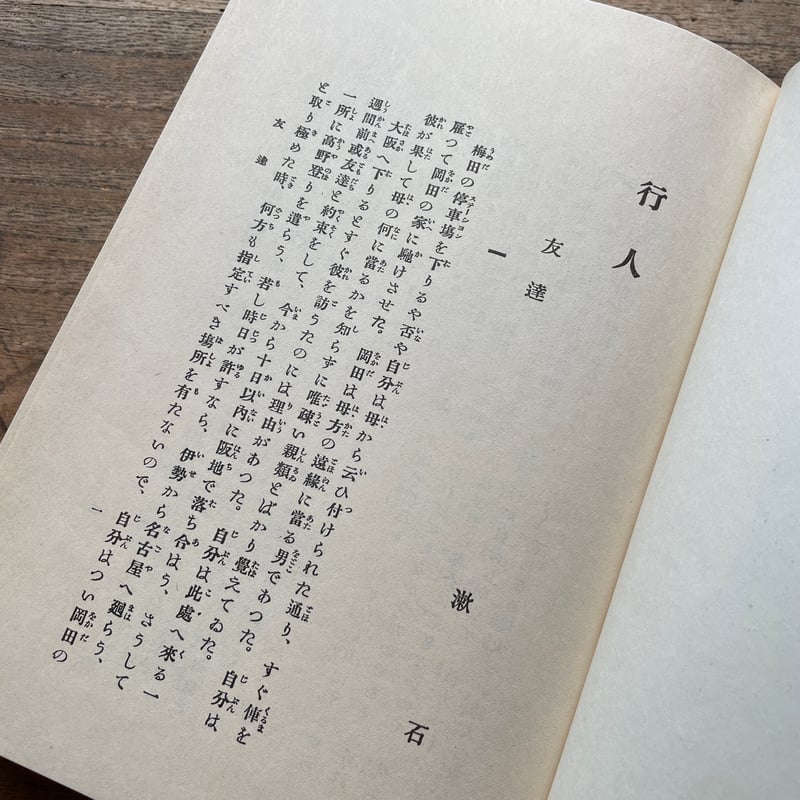 行人
漱石
友達
一
梅田の停車場を下りるや否や自分は母から云ひ付けられた通り、すぐ俥を
雇つて岡田の家に馳けさせた。岡田は母方の遠縁に當る男であつた。自分は
彼が果して母の何に當るかを知らずに唯疎い親類とばかり覺えてゐた。
大阪へ下りるとすぐ彼を訪うたのには理由があつた。自分は此處へ來る一
週間前或友達と約束をして、今から十日以內に阪地で落ち合はう、さうして
一所に高野登りを遣らう、若し時日が許すなら、伊勢から名古屋へ廻らう、
と取り極めた時、何方も指定すべき塲所を有たないので、自分はつい岡田の
友達
一